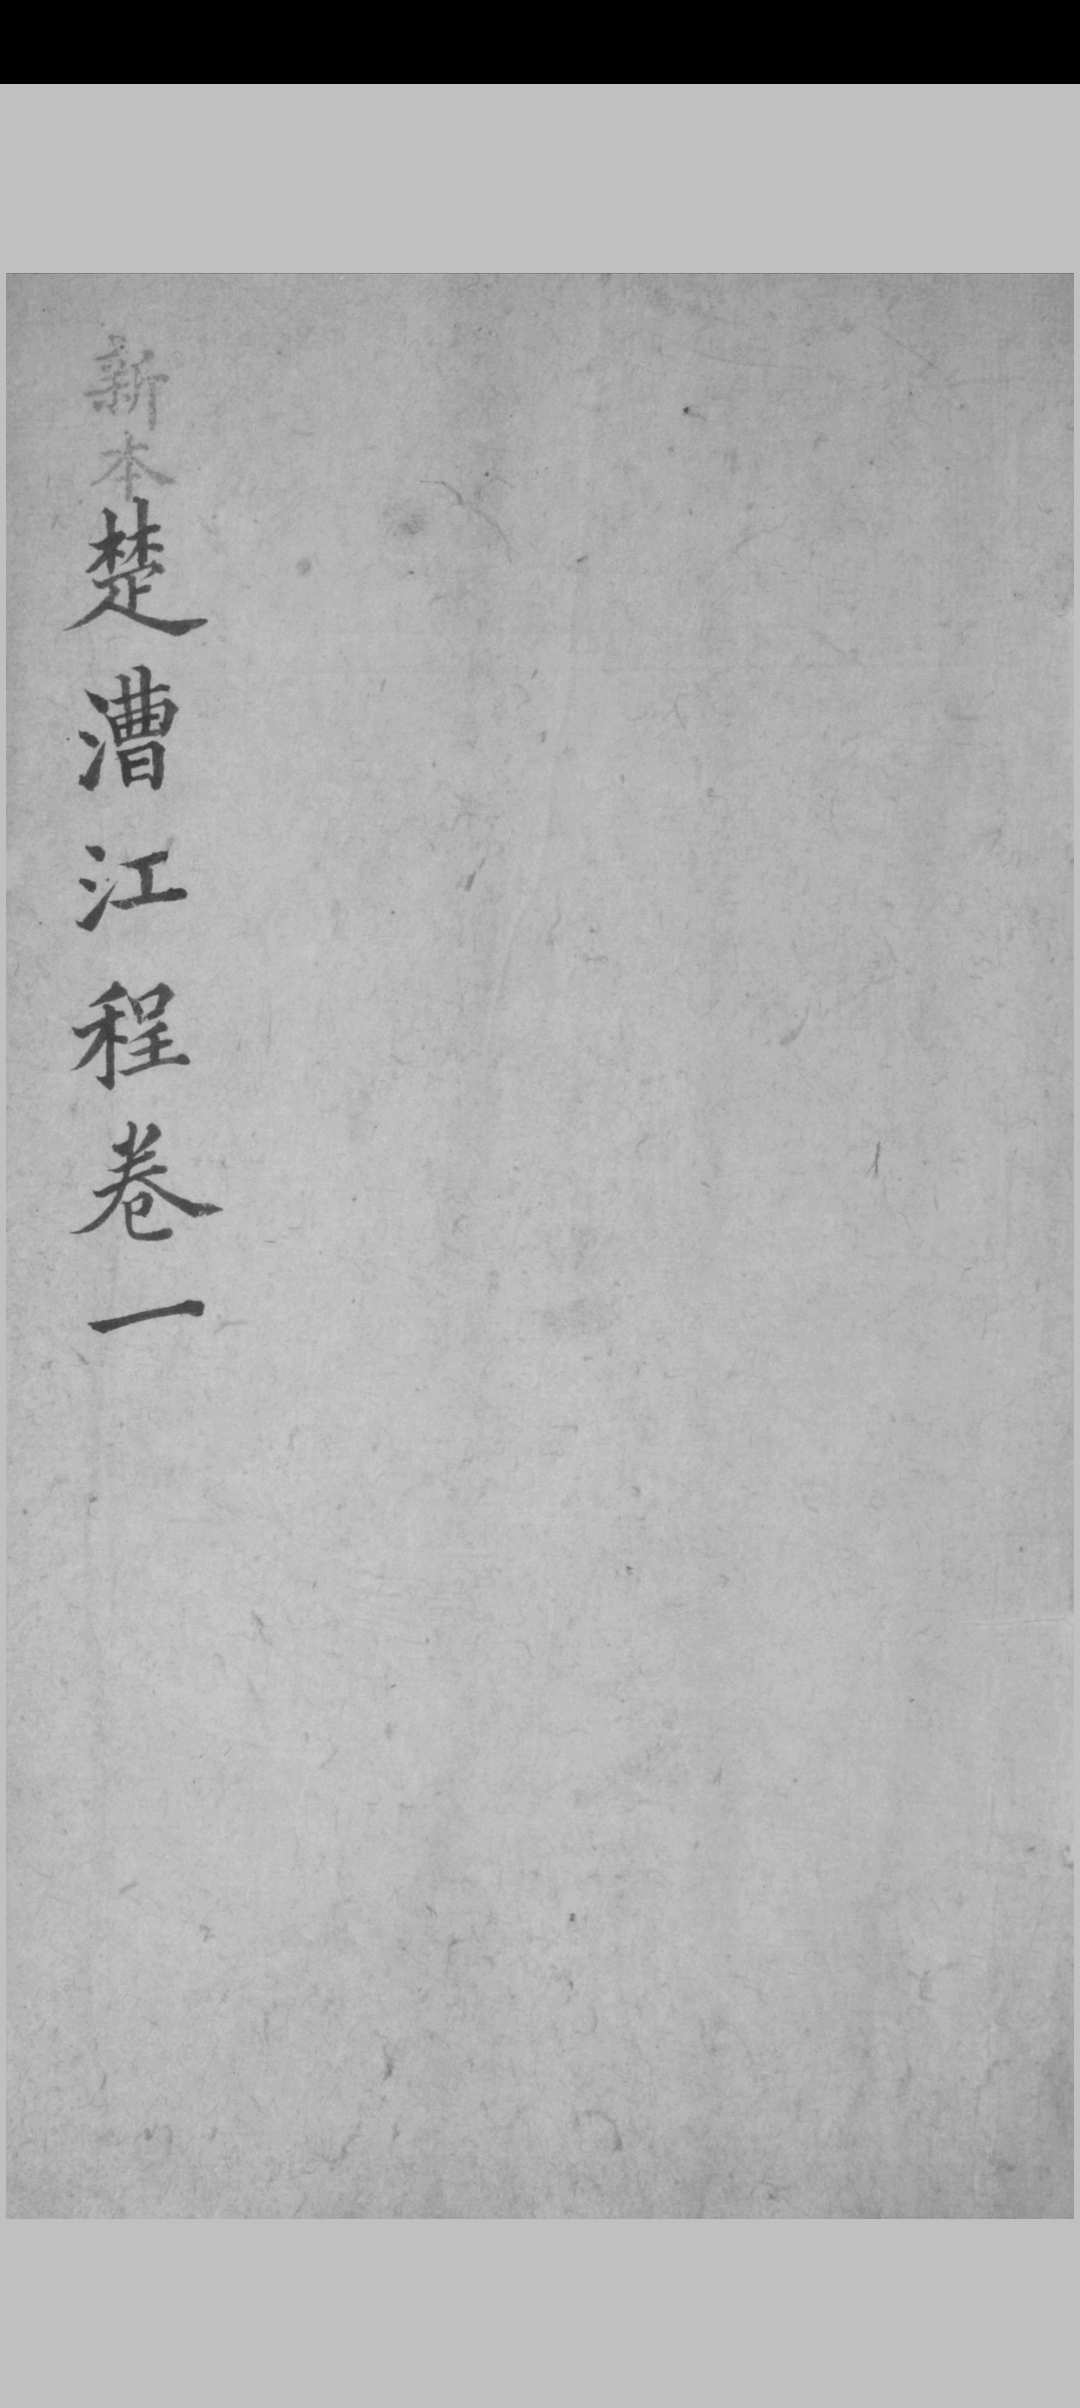 新本楚漕江程卷一